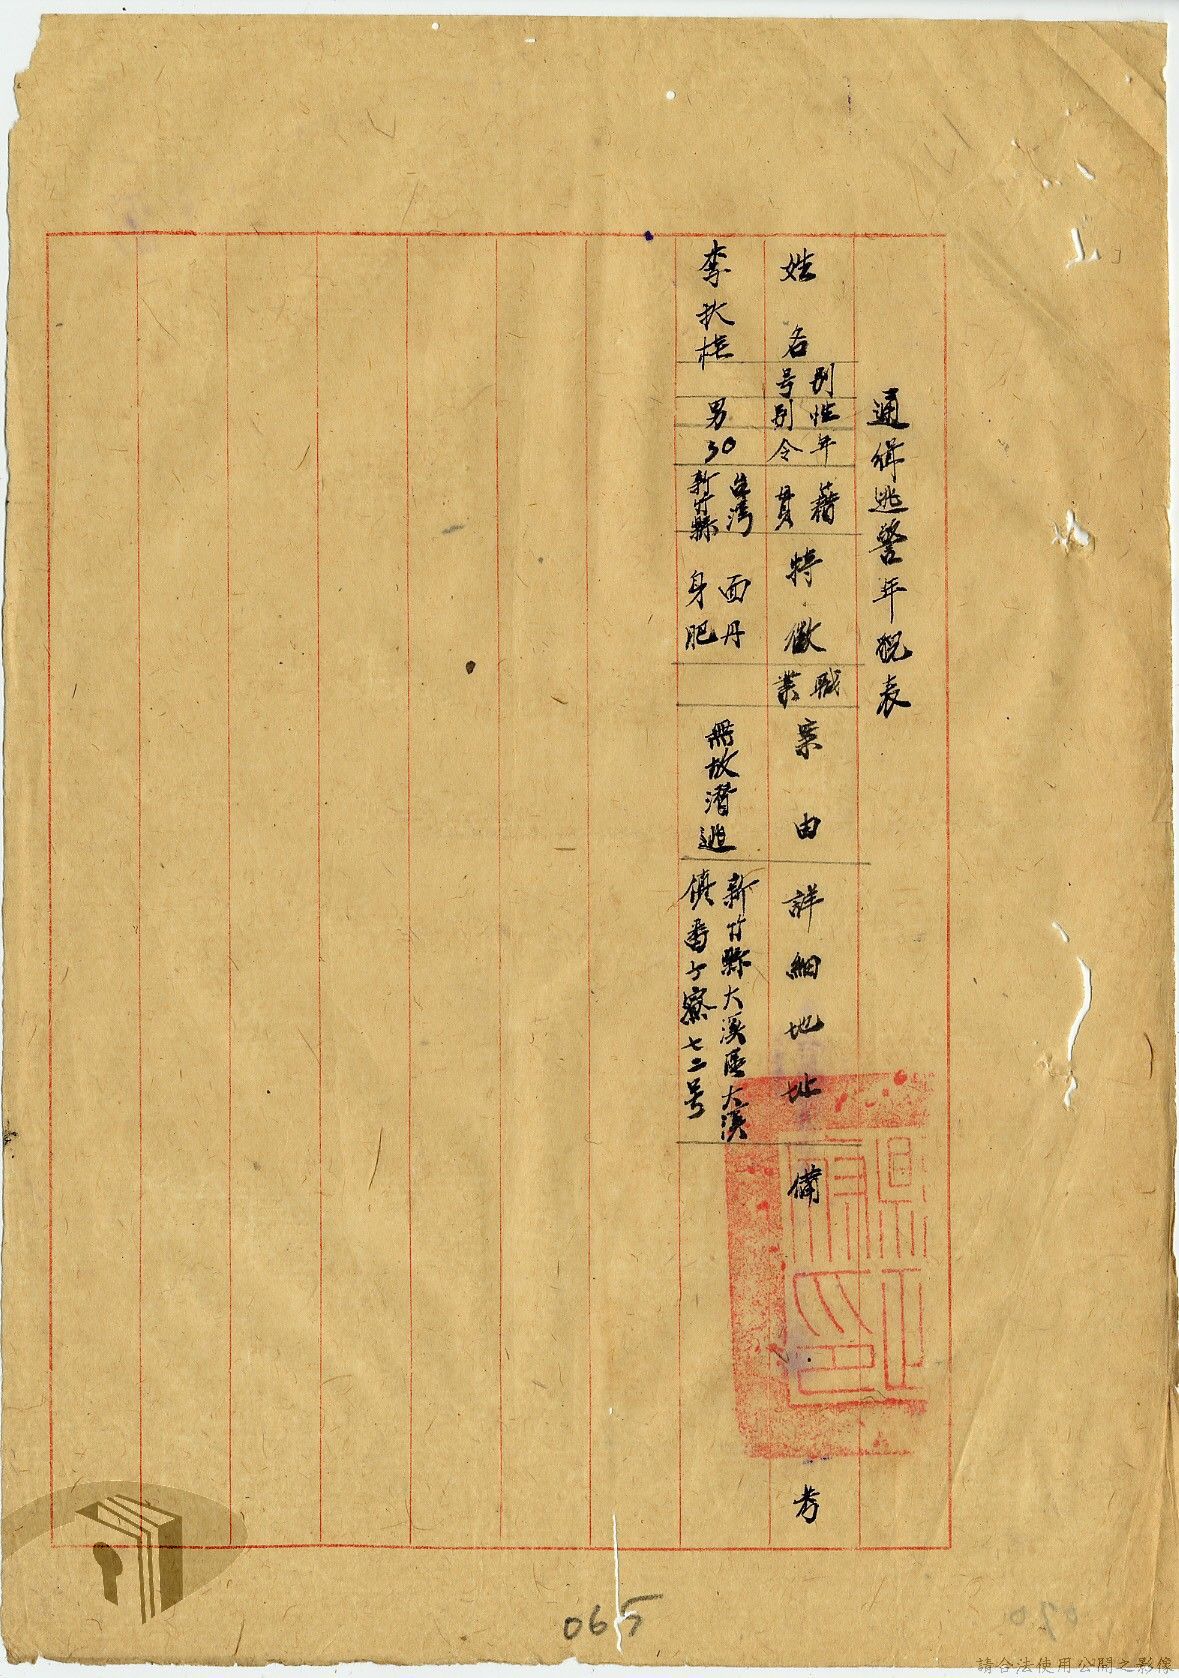 通緝逃警年貌表
姓名
別号
性別
年令
籍貫
特徵
職業
案由
詳細地址
備考
李秋桂
男
30
台灣
新竹縣
面丹
身肥
無故潛逃
新竹縣大溪區大溪
鎮番子寮七二号
065
請合法使用公開之影像